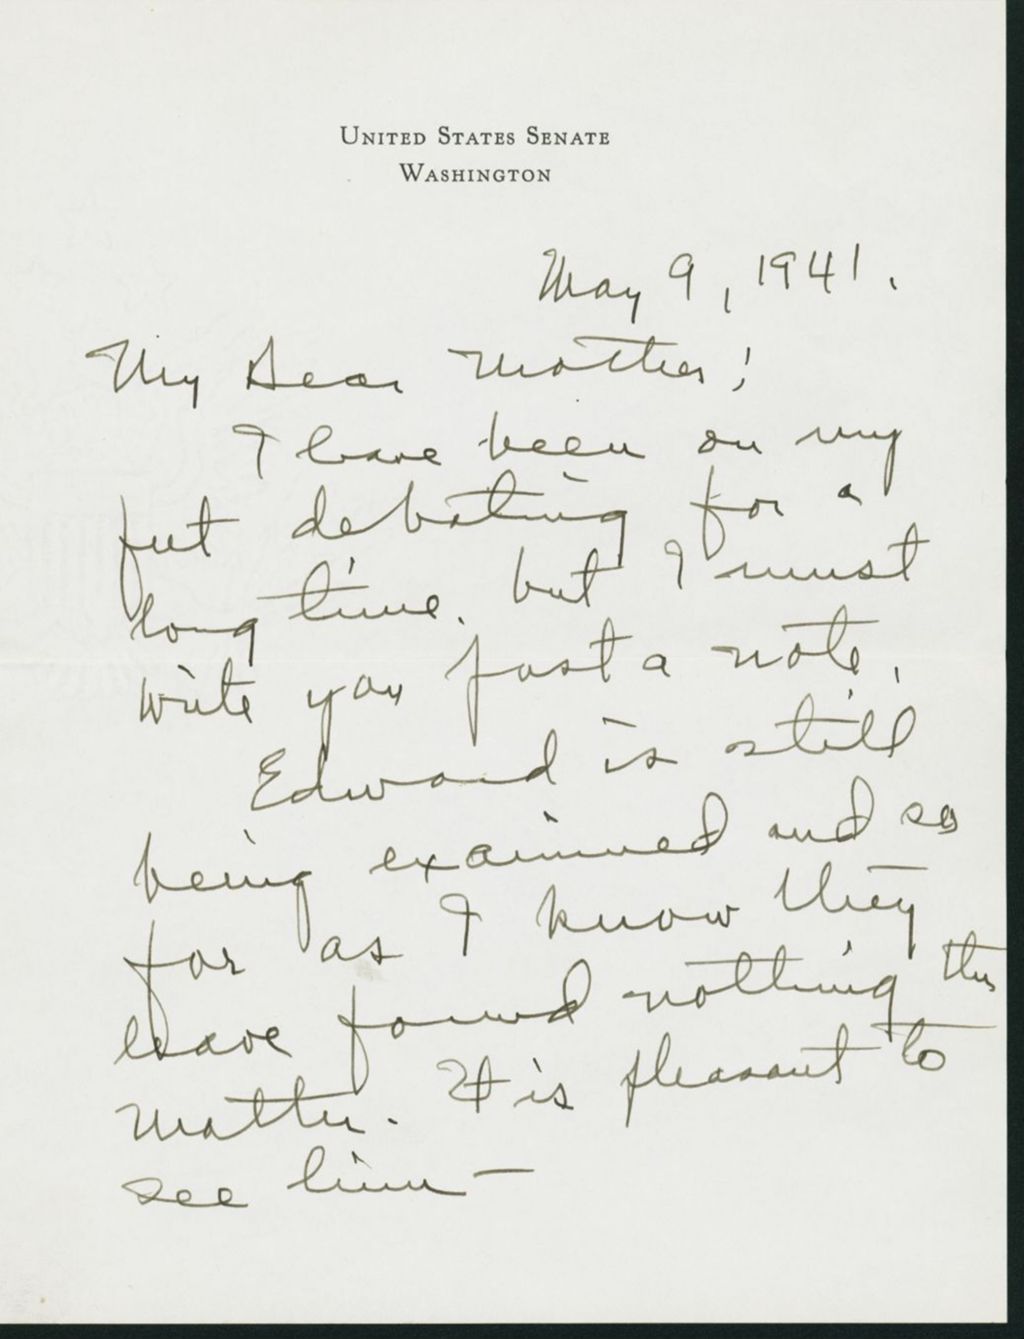 UNITED STATES SENATE
WASHINGTON
May 9, 1941.
My Dear Mother;
I have been on my
feet debating for a
long time. but I must
write you just a note.
Edward is still
being examined and so
far as I know they
have found nothing the
matter. It is pleasant to
see him –